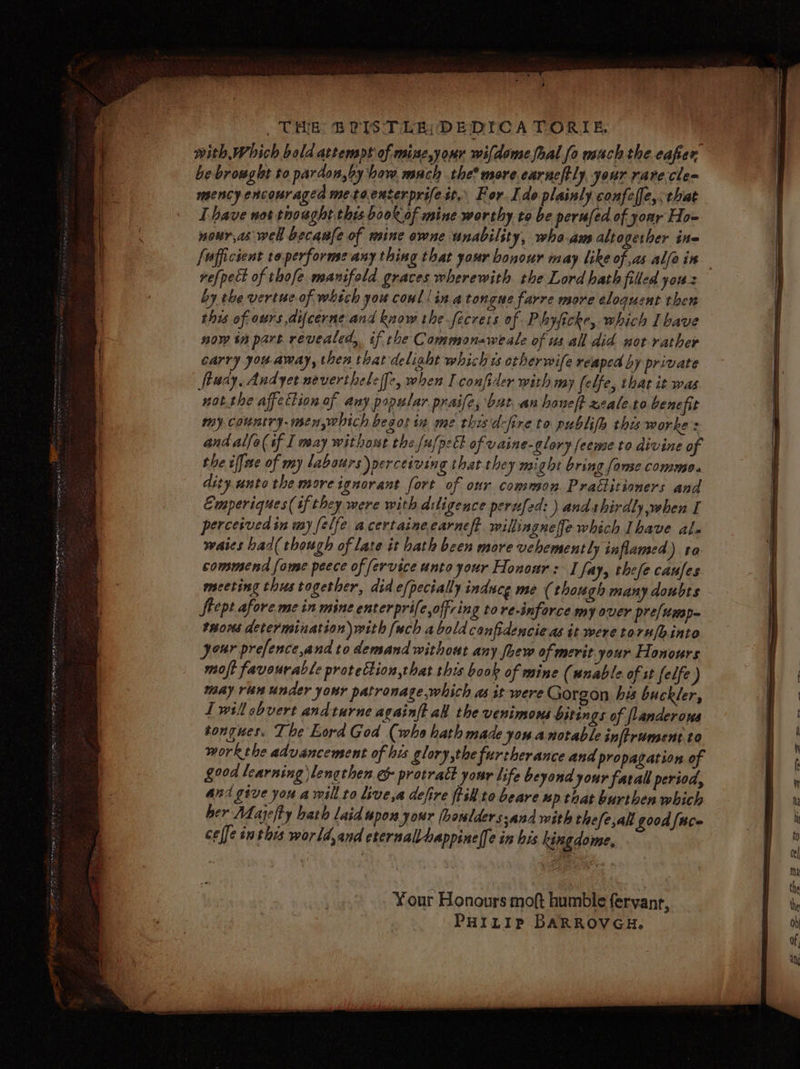 THE EPISTLE DEDICATORIE.
with which bold attempt of mine, your wiſdome ſhal ſo much the eaſier
be brought to pardon, by how much the more earneſtly your rare cle-
mency encouraged me to enterpriſe it. For I do plainly confeſſe, that
I have not thought this book of mine worthy to be peruſed of your Ho-
nour, as well becauſe of mine owne unability, who am altogether in-
ſufficient to performe any thing that your honour may like of, as alſo in
reſpect of thoſe manifold graces wherewith the Lord hath filled you:
by the vertue of which you coul in a tongue farre more eloquent then
this of ours, diſcerne and know the ſecrets of Phyſicke, which I have
now in part revealed, if the Common-weale of us all did not rather
carry you away, then that delight which is otherwiſe reaped by private
ſtudy. And yet nevertheleſſe, when I conſider with my ſelfe, that it was
not the affection of any popular praiſe, but an honeſt zeale to benefit
my country-men, which begot in me this deſire to publiſh this worke:
and alſo (if I may without the ſuſpect of vaine-glory ſeeme to divine of
the iſſue of my labours) perceiving that they might bring ſome commo-
dity unto the more ignorant ſort of our common Practitioners and
Emperiques (if they were with diligence peruſed:) and thirdly, when I
perceived in my ſelfe a certaine earneſt willingneſſe which I have al-
waies had (though of late it hath been more vehemently inflamed) to
commend ſome peece of ſervice unto your Honour: I ſay, theſe cauſes
meeting thus together, did eſpecially induce me (though many doubts
ſtept afore me in mine enterpriſe, offring to re-inforce my over preſump-
tuous determination) with ſuch a bold confidencie as it were to ruſh into
your preſence, and to demand without any ſhew of merit your Honours
moſt favourable protection, that this book of mine (unable of it ſelfe)
may run under your patronage, which as it were Gorgon his buckler,
I will obvert and turne againſt all the venimous bitings of ſlanderous
tongues. The Lord God (who hath made you a notable inſtrument to
work the advancement of his glory, the furtherance and propagation of
good learning) lengthen & protract your life beyond your fatall period,
and give you a will to live, a deſire ſtill to beare up that burthen which
her Majeſty hath laid upon your ſhoulders; and with theſe, all good ſuc-
ceſſe in this world, and eternall happineſſe in his kingdome.
Your Honours moſt humble ſervant,
PHILIP BARROVGH.